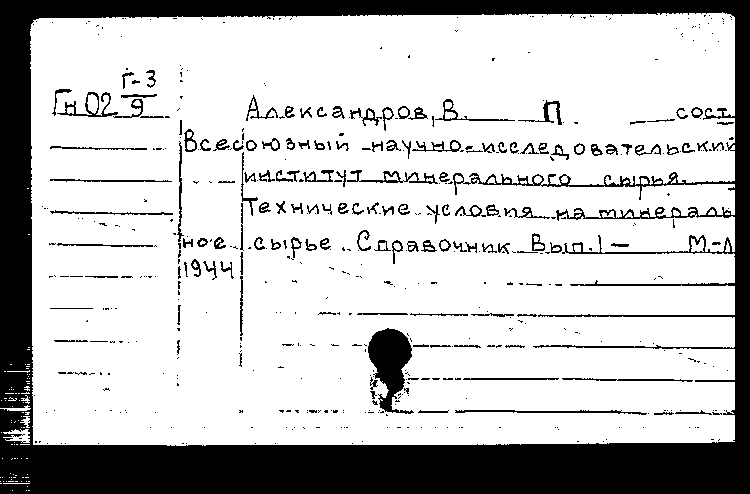 Гн02 Г-3/9
Александров, В. П. сост.
Всесоюзный научно-исследовательский
институт минерального сырья.
Технические условия на минераль
ное сырье. Справочник Вып. 1 — М.-Л
1944